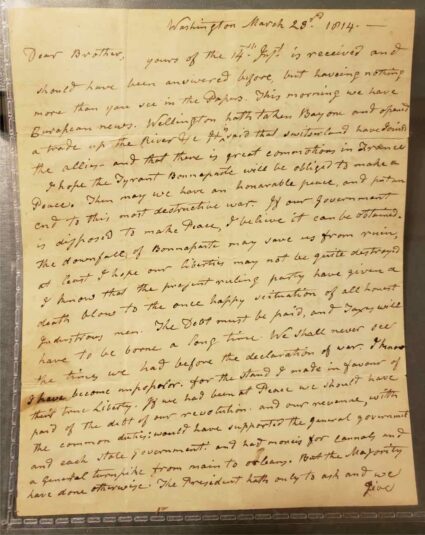 Washington March 23rd 1814.—
Dear Brother, yours of the 14th Inst is received and
should have been answered before, but haveing nothing
more than you see in the Papers. This morning we have
European news. Wellington hath taken Bayone and opened
a trade up the River &c It is said that Switserland have Joined
the allies and that there is great commotions in France
I hope the Tyrant Bonnaparte will be obliged to make a
Peace. Then may we have an honarable peace, and put an
end to this most destructive war. If our Government
is disposed to make Peace, I believe it can be obtained.
the downfall of Bonnaparte may save us from ruin,
at least I hope our Liberties may not be quite destroyed
I know that the present ruling party have given a
death blow to the once happy scituation of all honest
Industrous men. The Debt must be paid, and Taxes will
have to be borne a long time. We shall never see
the times we had before the declaration of war. I know
I have become unpopolor. for the stand I made in favour of
true Liberty. If we had been at Peace we should have
paid of the debt of our revolution. and our revenue, with
the common duties would have supported the general goverment
and each state government. and had moneis for cannals and
a General turnpike from main to orleans. But the Majority
have done otherwise. The President hath only to ask and we
give